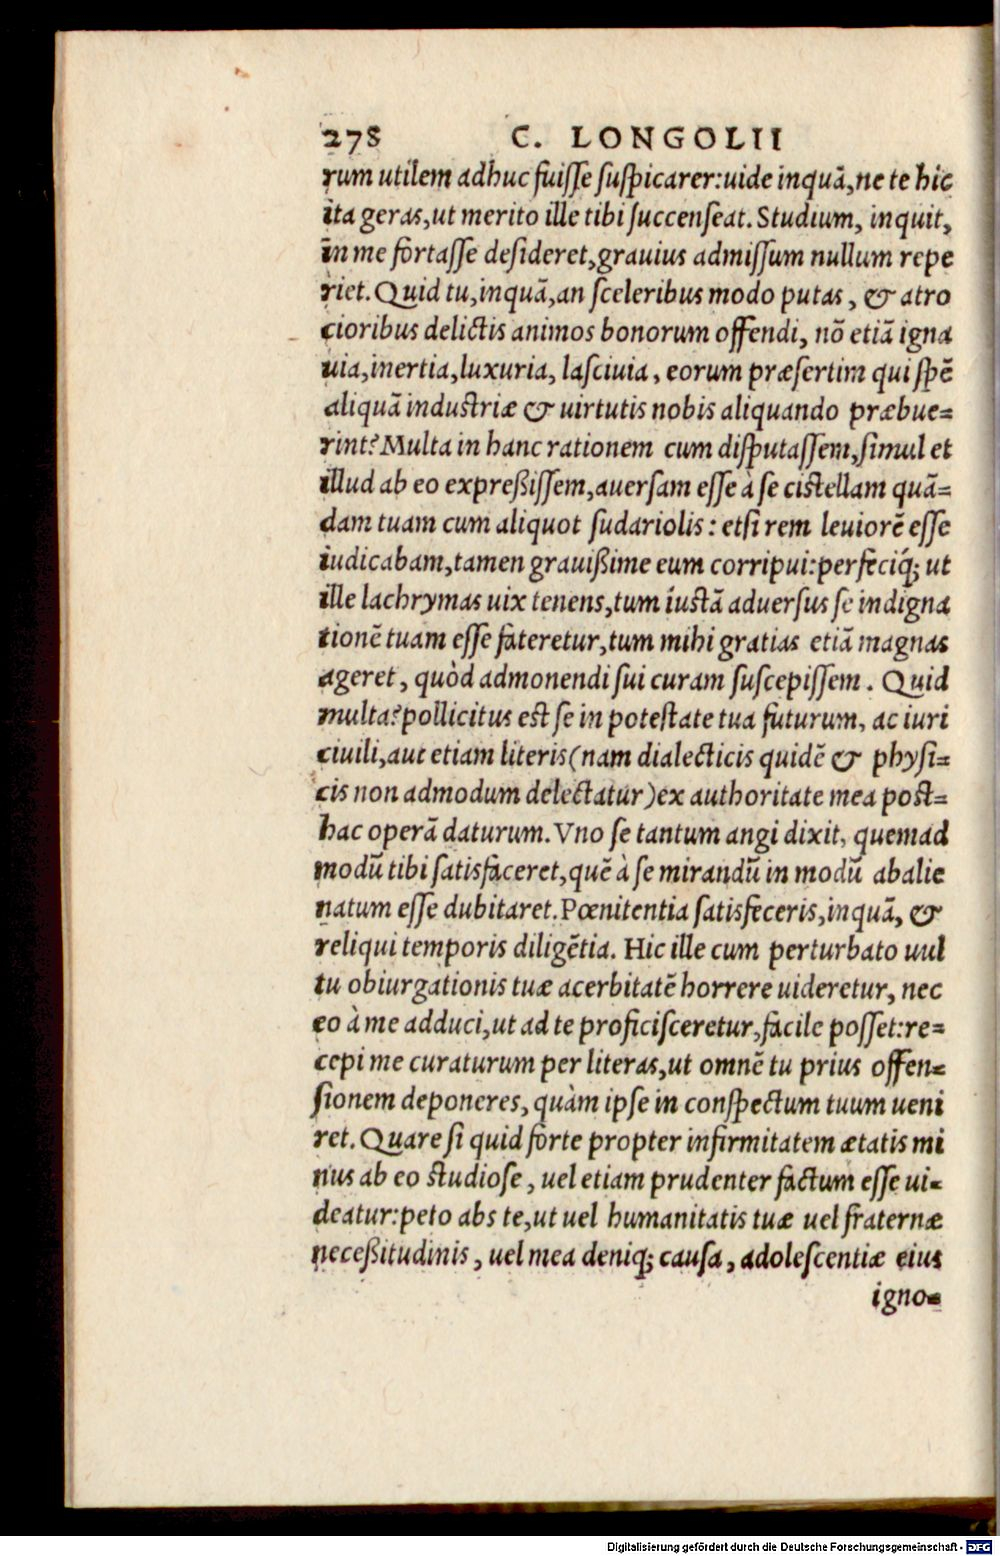 278 C. LONGOLII
rum utilem adhuc fuisse suspicarer:uide inquã,ne te hic
ita geras,ut merito ille tibi succenseat. Studium, inquit,
in me fortasse desideret,grauius admissum nullum repe
riet. Quid tu,inquã,an sceleribus modo putas, & atro
cioribus delictis animos bonorum offendi, nõ etiã igna
uia,inertia,luxuria, lasciuia, eorum præsertim qui spẽ
aliquã industriæ & uirtutis nobis aliquando præbue=
rint? Multa in hanc rationem cum disputassem,simul et
illud ab eo expreßissem,auersam esse à se cistellam quã=
dam tuam cum aliquot sudariolis: etsi rem leuiorẽ esse
iudicabam,tamen grauißime eum corripui:perfeciq́; ut
ille lachrymas uix tenens,tum iustã aduersus se indigna
tionẽ tuam esse fateretur,tum mihi gratias etiã magnas
ageret, quòd admonendi sui curam suscepissem. Quid
multa? pollicitus est se in potestate tua futurum, ac iuri
ciuili,aut etiam literis(nam dialecticis quidẽ & physi=
cis non admodum delectatur)ex authoritate mea post=
hac operã daturum. Vno se tantum angi dixit, quemad
modũ tibi satisfaceret,quẽ à se mirandũ in modũ abalie
natum esse dubitaret. Pœnitentia satisfeceris,inquã, &
reliqui temporis diligẽtia. Hic ille cum perturbato uul
tu obiurgationis tuæ acerbitatẽ horrere uideretur, nec
eo à me adduci,ut ad te proficisceretur,facile posset:re=
cepi me curaturum per literas,ut omnẽ tu prius offen=
sionem deponeres, quàm ipse in conspectum tuum ueni
ret. Quare si quid forte propter infirmitatem ætatis mi
nus ab eo studiose, uel etiam prudenter factum esse ui=
deatur:peto abs te,ut uel humanitatis tuæ uel fraternæ
neceßitudinis, uel mea deniq; causa, adolescentiæ eius
igno=
Digitalisierung gefördert durch die Deutsche Forschungsgemeinschaft - DFG